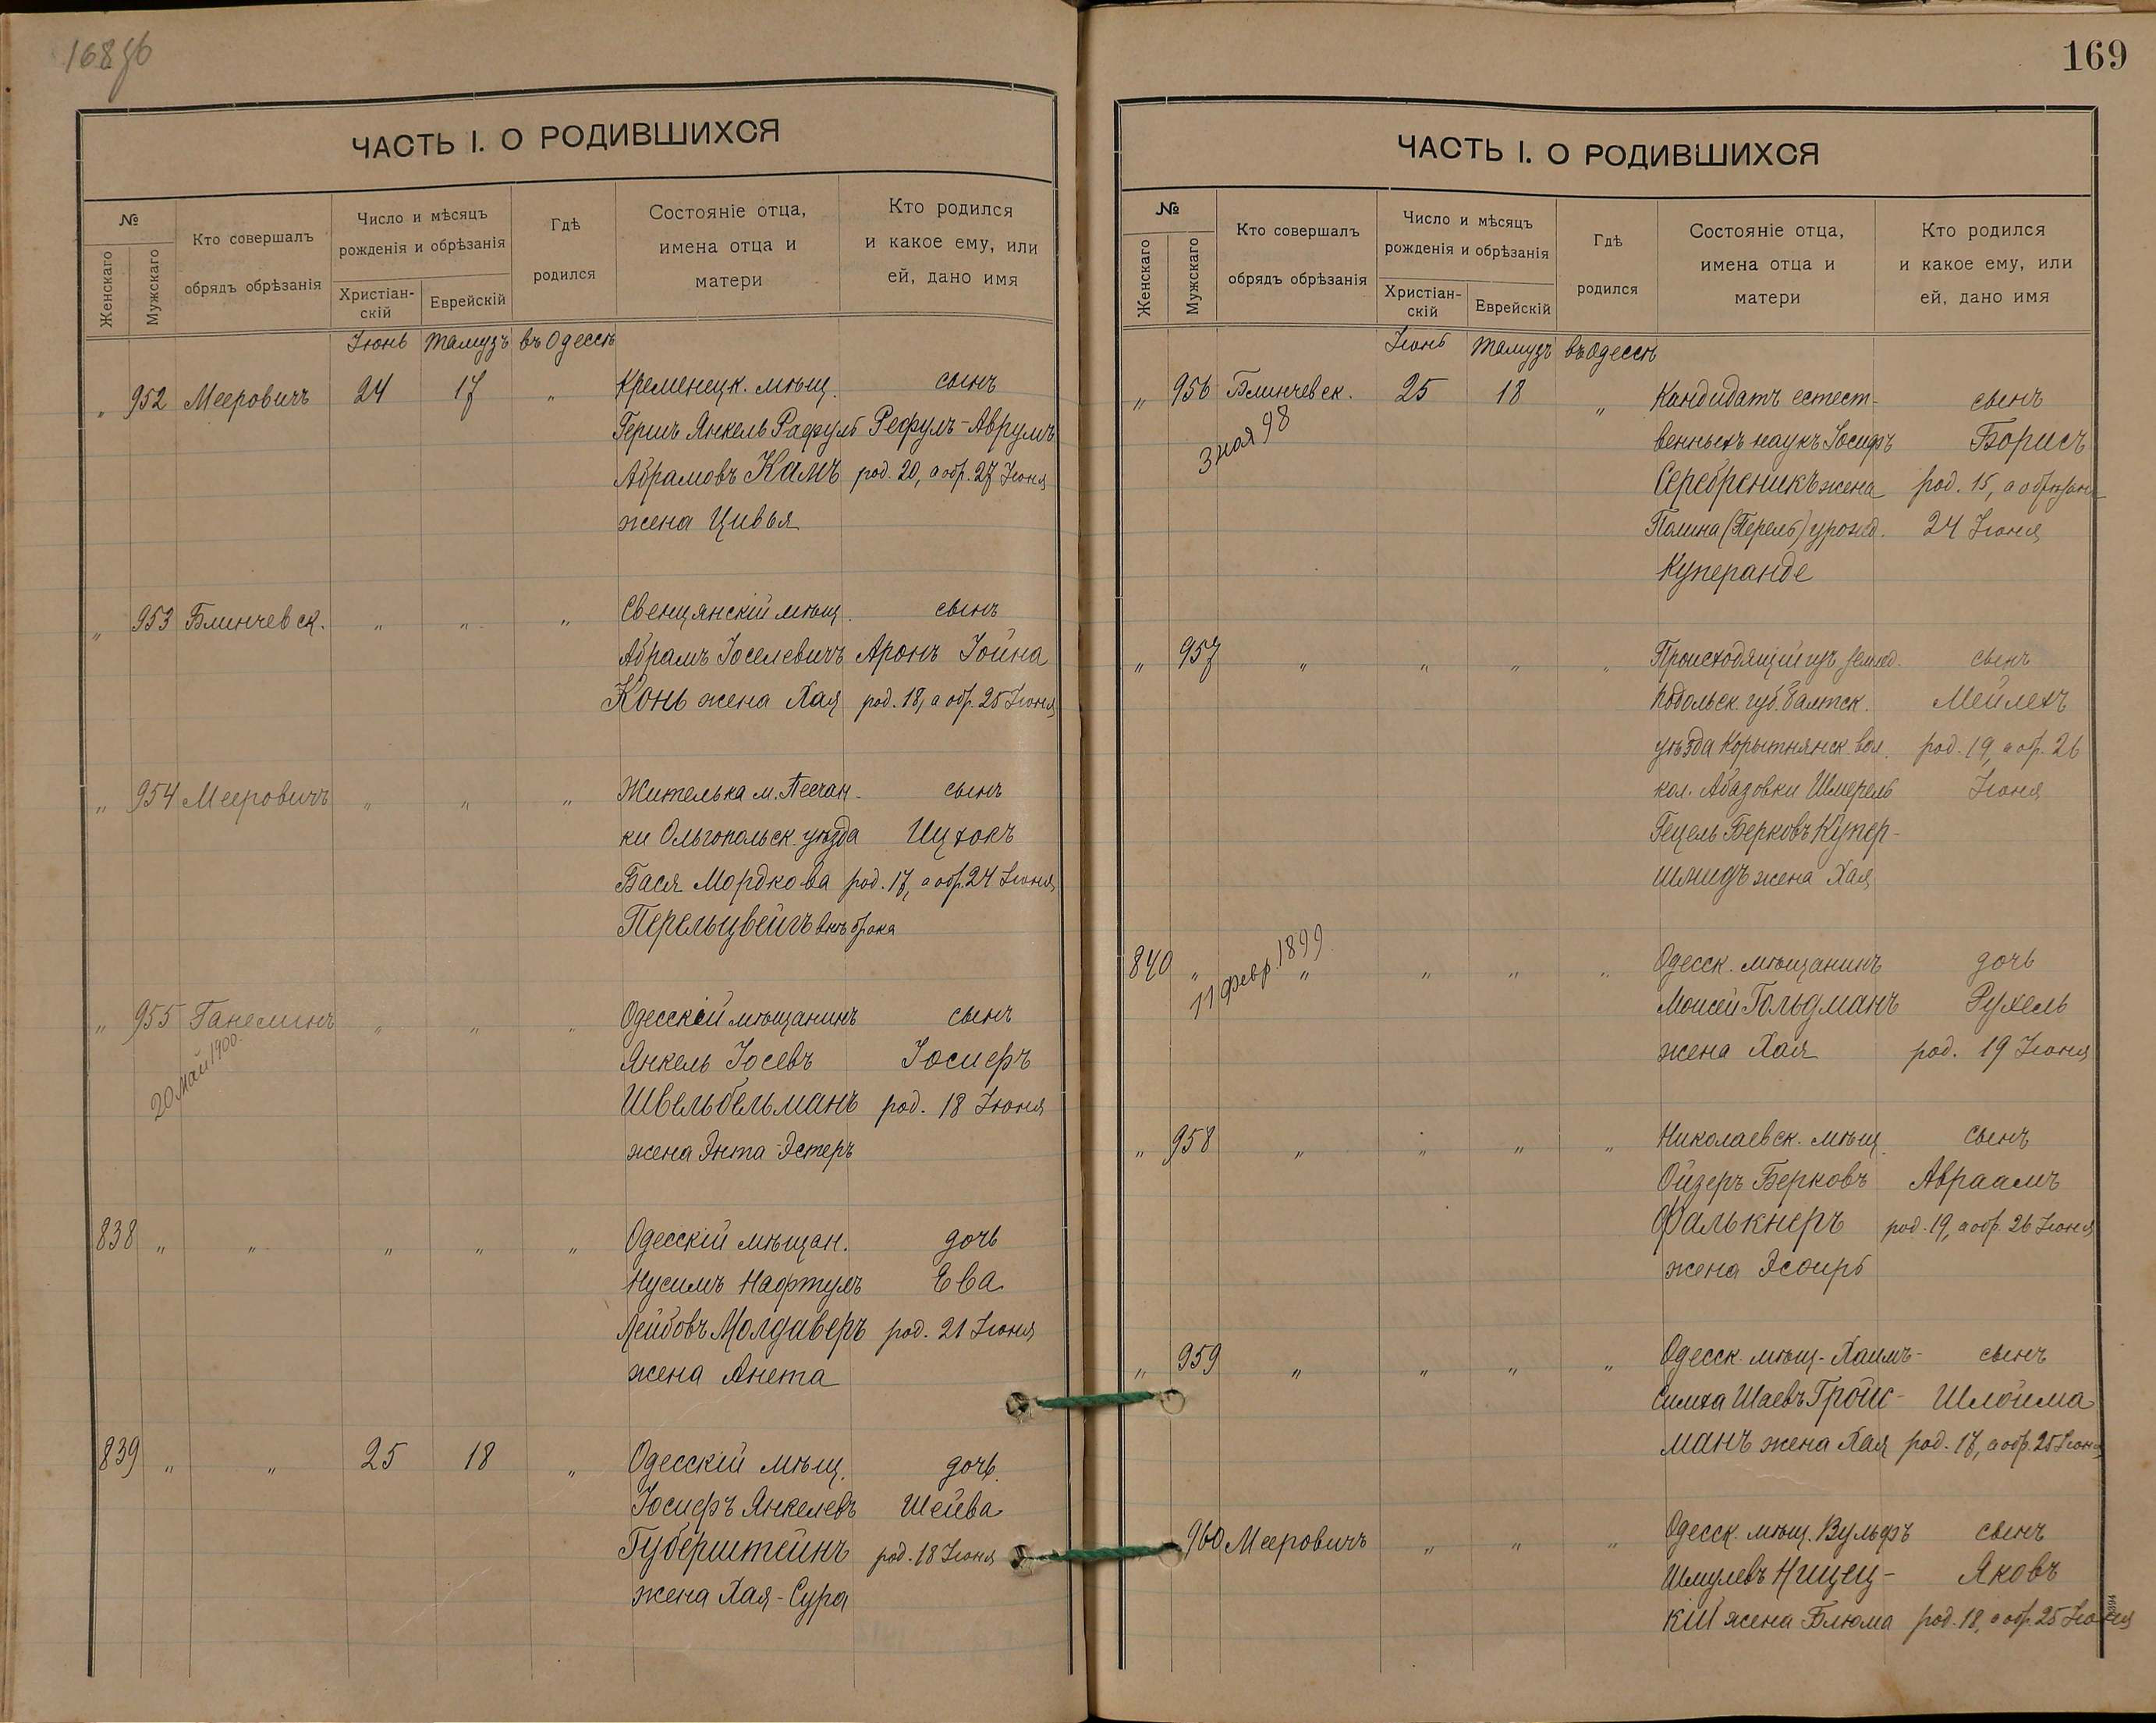 168об
ЧАСТЬ I. О РОДИВШИХСЯ
№
Женскаго
Мужскаго
Кто совершалъ
обрядъ обрѣзанія
Число и мѣсяцъ
рожденія и обрѣзанія
Христіан-
скій
Еврейскій
Гдѣ
родился
Состояніе отца,
имена отца и
матери
Кто родился
и какое ему, или
ей, дано имя
Іюнь Тамузъ въ Одессѣ
„ 952 Мееровичъ 24 17 „ Кременецк. мѣщ. сынъ
Гершъ Янкель Рафулъ Рефулъ-Аврумъ
Абрамовъ Камъ род. 20, а обр. 27 Іюня
жена Цивья
„ 953 Блинчевск. „ „ „ Свенцянскій мѣщ. сынъ
Абрамъ Іоселевичъ Аронъ Іойна
Конь жена Хая род. 18, а обр. 25 Іюня
„ 954 Мееровичъ „ „ „ Жителька м. Песчан- сынъ
ки Ольгопольск. уѣзда Ицхокъ
Бася Мордкова род. 17, а обр. 24 Іюня
Перельцвейгъ внѣ брака
„ 955 Ганелинъ „ „ „ Одесскій мѣщанинъ сынъ
20 май 1900.
Янкель Іосевъ Іосифъ
Швельбельманъ род. 18 Іюня
жена Энта-Эстеръ
838 „ „ „ „ „ Одесскій мѣщан. дочь
Нусимъ Нафтулъ Ева
Лейбовъ Молдаверъ род. 21 Іюня
жена Анета
839 „ „ 25 18 „ Одесскій мѣщ. дочь
Іосифъ Янкелевъ Шейва
Губерштейнъ род. 18 Іюня
жена Хая-Сура
169
ЧАСТЬ I. О РОДИВШИХСЯ
№
Женскаго
Мужскаго
Кто совершалъ
обрядъ обрѣзанія
Число и мѣсяцъ
рожденія и обрѣзанія
Христіан-
скій
Еврейскій
Гдѣ
родился
Состояніе отца,
имена отца и
матери
Кто родился
и какое ему, или
ей, дано имя
Іюнь Тамузъ въ Одессѣ
„ 956 Блинчевск. 25 18 „ Кандидатъ естест- сынъ
98
венныхъ наукъ Іосифъ Борисъ
Серебреникъ жена род. 15, а обрѣзан
Полина (Перель) урожд. 24 Іюня
Куперанде
„ 957 „ „ „ „ Происходящій изъ землед. сынъ
Подольск. губ. Балтск. Мейлехъ
уѣзда Корытнянск. вол. род. 19, а обр. 26
кол. Абазовки Шмерель Іюня
Гецель Берковъ Купер-
шмидъ жена Хая
840 „ „ „ „ „ Одесск. мѣщанинъ дочь
11 февр. 1899
Моисей Гольдманъ Рухель
жена Хая род. 19 Іюня
„ 958 „ „ „ „ Николаевск. мѣщ. сынъ
Ойзеръ Берковъ Авраамъ
Фалькнеръ род. 19, а обр. 26 Іюня
жена Эсѳирь
„ 959 „ „ „ „ Одесск. мѣщ. Хаимъ- сынъ
Симха Шаевъ Гройс- Шлойма
манъ жена Хая род. 17, а обр. 25 Іюня
960 Мееровичъ „ „ „ Одесск. мѣщ. Вульфъ сынъ
Шмулевъ Ницец- Яковъ
кій жена Блюма род. 18, а обр. 25 Іюня